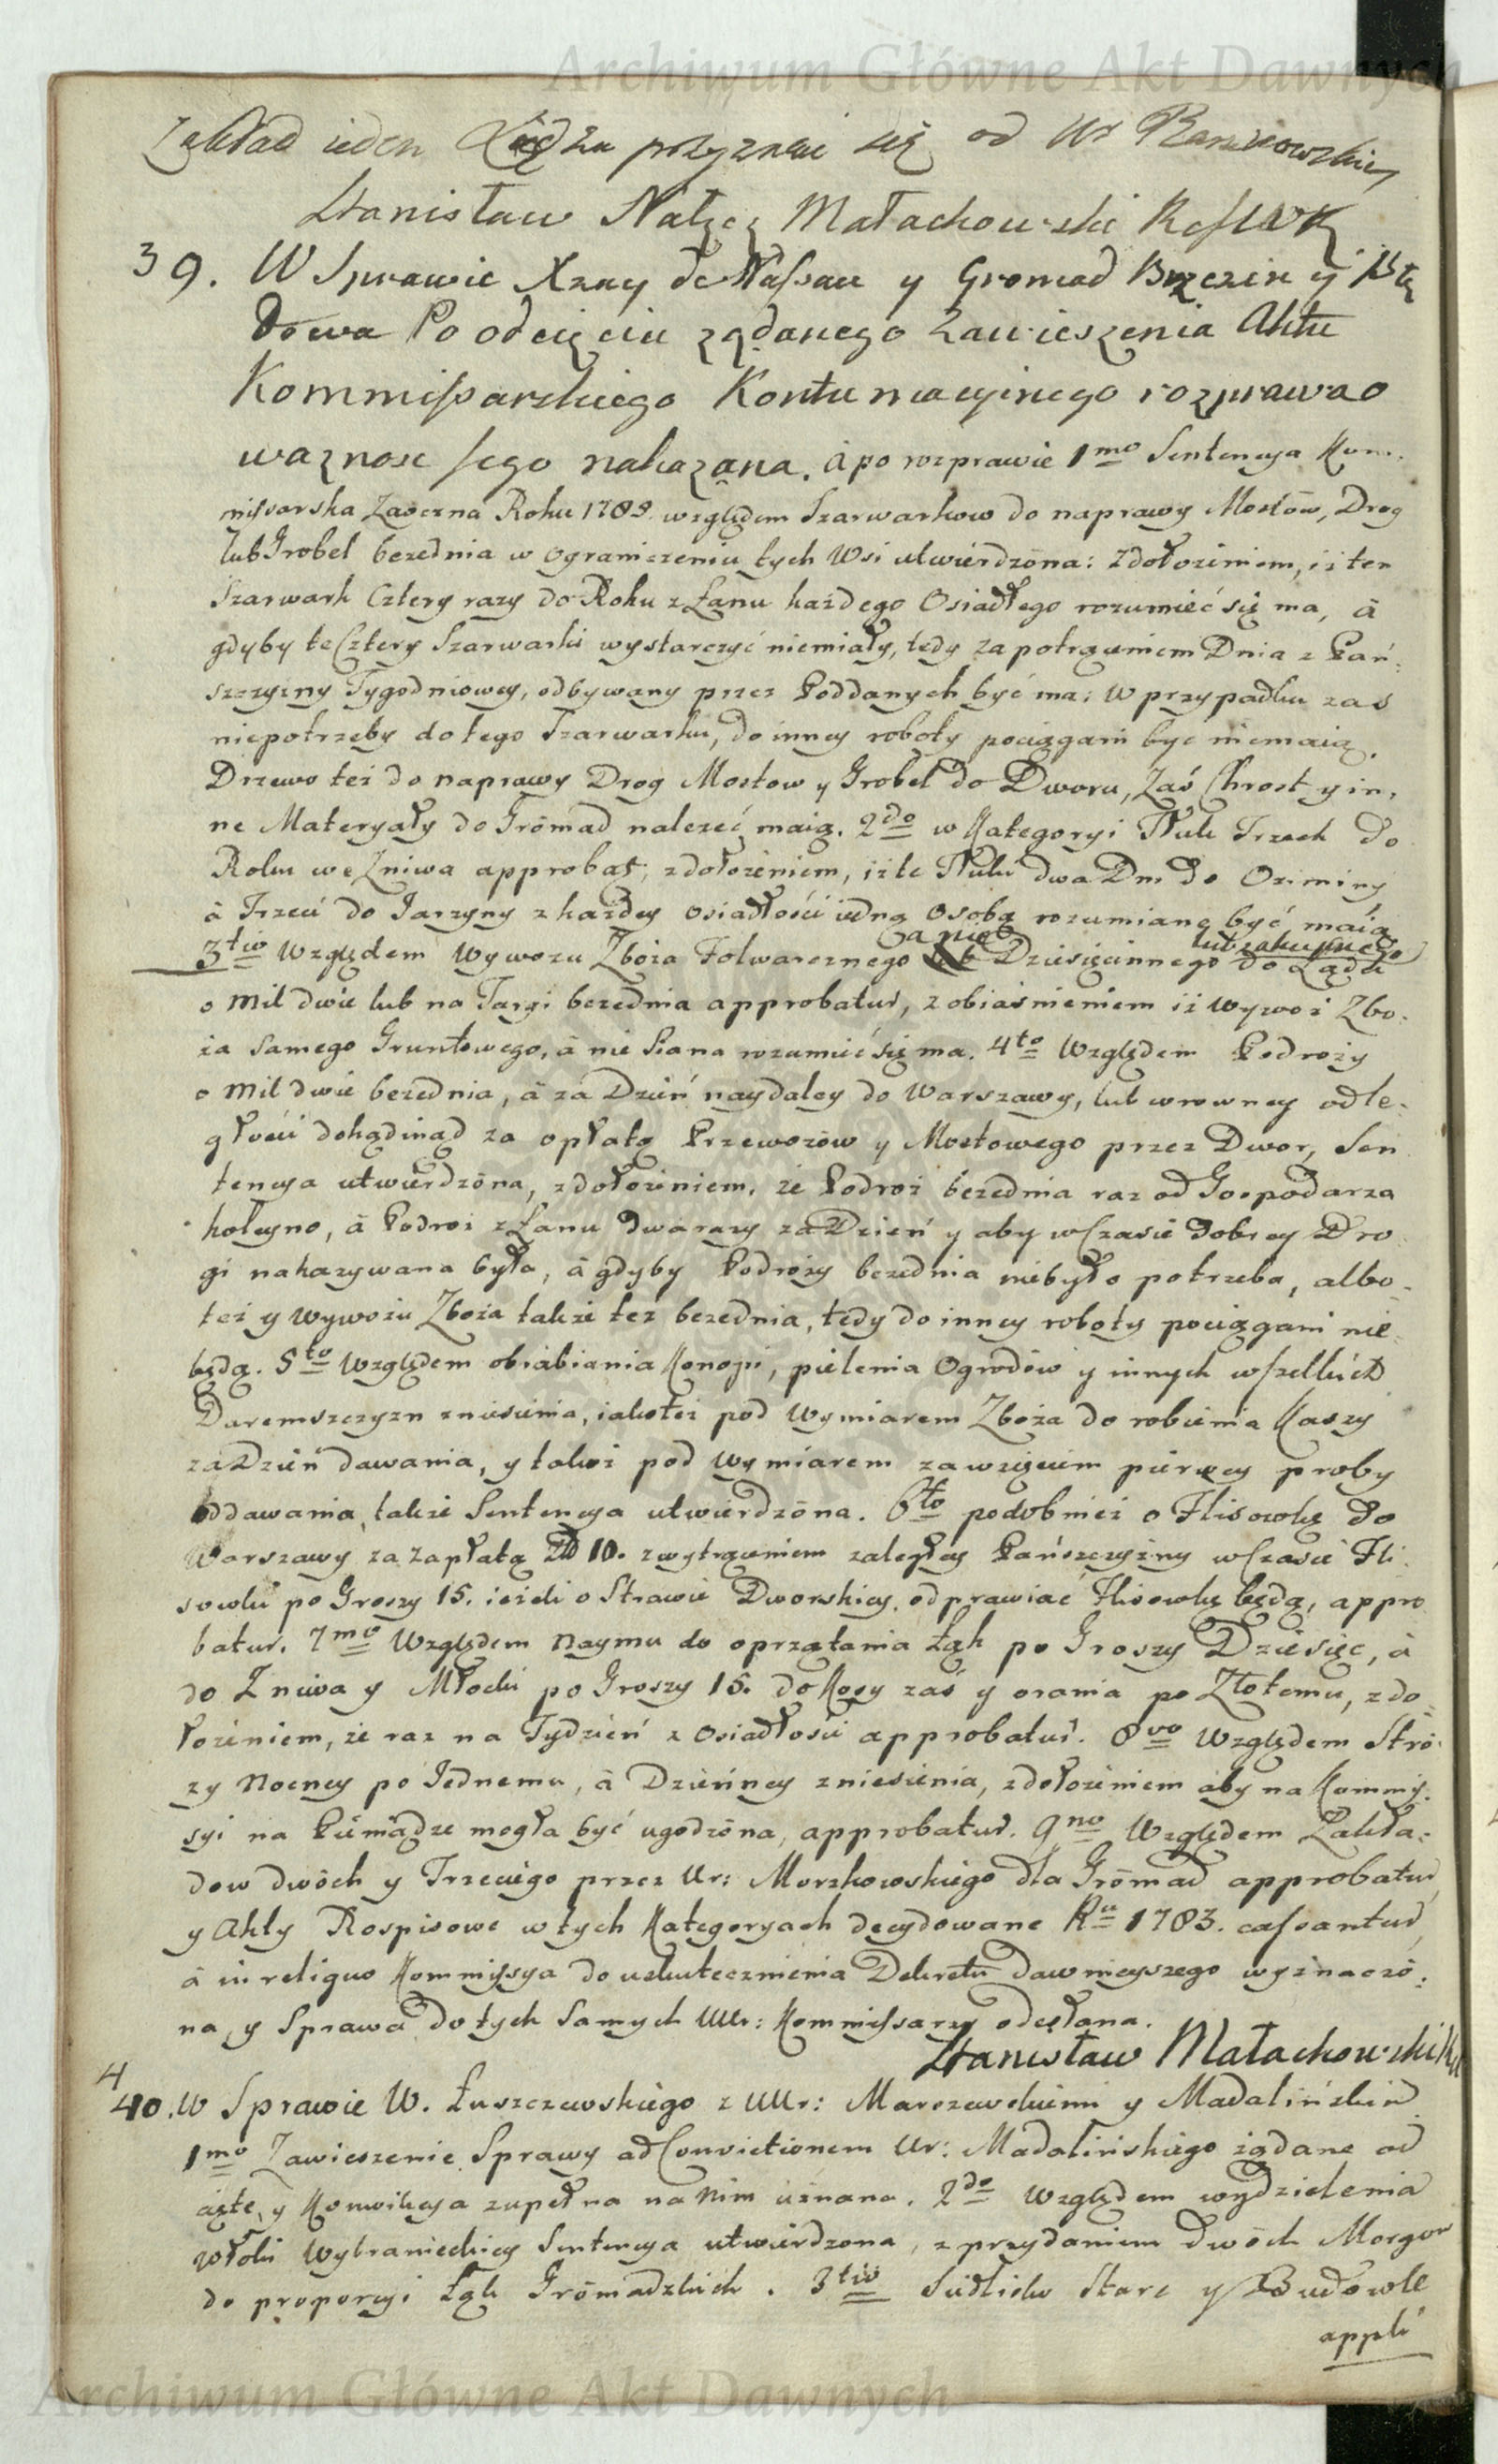 Archiwum Główne Akt Dawnych
Zakład ieden Xiędzu przyznai się od Ur
Stanisław Nałęcz Małachowski
39. W Sprawie Xzny de Nassau y Gromad Brzezin y
dowa Po odcięciu żądanego Zawieszenia Aktu
Kommissarskiego Kontumacyinego rozprawa o
waznosc jego nakazana. à po rozprawie 1mo Sentencya Kom.
missarska Zaoczna Roku 1789. względem Szarwarkow do naprawy Mostōw, Drog
lub Grobel bezednia w ograniczeniu tych Wsi utwierdzōna: zdołożeniem, iż ten
Szarwark Cztery razy do Roku z Łanu każdego Osiadłego rozumieć się ma, à
gdyby te Cztery Szarwarki wystarczyć niemiały, tedy za potrąceniem Dnia z Pań:
szczyzny Tygodniowey, odbywany przez Poddanych być ma: w przypadku zaś
niepotrzeby do tego Szarwarku, do inney roboty pociągani byc niemaią.
Drzewo też do naprawy Drog Mostow y Grobel do Dworu, Zaś Chrost y in,
ne Materyały do Grōmad należeć maią. 2do w Kategoryi Tłuk Trzech do
Roku we Zniwa approbat, zdołożeniem, iż te Tłuki dwa Dni do Oziminy
à Trzeci do Jarzyny z każdey osiadłości iedną Osobą rozumiane być maią
3tio Względem wywozu Zboża Folwarcznego a nie Dziesięcinnego lub zakupnego do Lądu
o Mil dwie lub na Targi bezednia approbatur, z obiaśnieniem iż wywoz Zbo.
ża samego Gruntowego, à nie Siana rozumieć się ma. 4to Względem Podroży
o Mil dwie bezednia, à zà Dzień naydaley do Warszawy, lub w rowney odle-
głości dokądinąd za opłatą Przewozōw y Mostowego przez Dwor, Sen
tencya utwierdzōna, zdołożeniem, że Podroż bezednia raz od Gospodarza
koleyno, à Podroż z Łanu dwa razy za Dzień y aby w Czasie dobrey Dro
gi nakazywana była, à gdyby Podroży bezednia niebyło potrzeba, albo-
też y wywozu Zboża także też bezednia, tedy do inney roboty pociągani nie
będą. 5to Względem obiabiania Konopi, pielenia Ogrodōw y innych wszelkich
Daremszczyzn zniesienia, iakoteż pod wymiarem Zboża do robienia Kaszy
zà Dzień dawania, y takoż pod wymiarem zawzięciem pierwey proby
oddawania, także Sentencya utwierdzōna. 6to podobnież o Flisowkę do
Warszawy za zapłatą Zł 10. z wytrąceniem zaległey Pańszczyzny w Czasie Fli
sowki po Groszy 15. ieżeli o Strawie Dworskiey, odprawiać Flisowkę będą, appro
batur. 7mo Względem Naymu do oprzątania Łąk po Groszy Dziesięc, à
do Zniwa y Młocki po Groszy 15. do Kosy zaś y orania po Złotemu, z do
łożeniem, że raz na Tydzień z Osiadłości approbatur. 8vo Względem Strō.
ży Nocney po Jednemu, à Dzieńney zniesienia, zdołożeniem aby na Kommis.
syi na Pieniądze mogła być ugodzōna, approbatur. 9no Względem Zakła.
dow dwōch y Trzeciego przez Ur: Morzkowskiego dla Grōmad approbatur,
y Akty Rospisowe w tych Kategoryach decydowane Ru 1783. cassantur,
à in reliquo Kommissya do uskutecznienia Dekretu dawnieyszego wyznaczō.
na, y Sprawa do tych samych UUr: Kommissarzy odesłana.
Stanisław Małachowski
4
40. W Sprawie W. Łuszczewskiego z UUr: Marszewskiemi y Madalińskim
1mo Zawieszenie Sprawy ad Convictionem Ur: Madalińskiego żądane od
cięte, y Konwikcya zupełna na Nim uznana. 2do Względem wydzielenia
włoki Wybranieckiey Sentencya utwierdzona, z przydaniem Dwōch Morgow
do proporcyi Łąk Grōmadzkich. 3tio Siedlisko Stare y Budowle
appli
Archiwum Główne Akt Dawnych